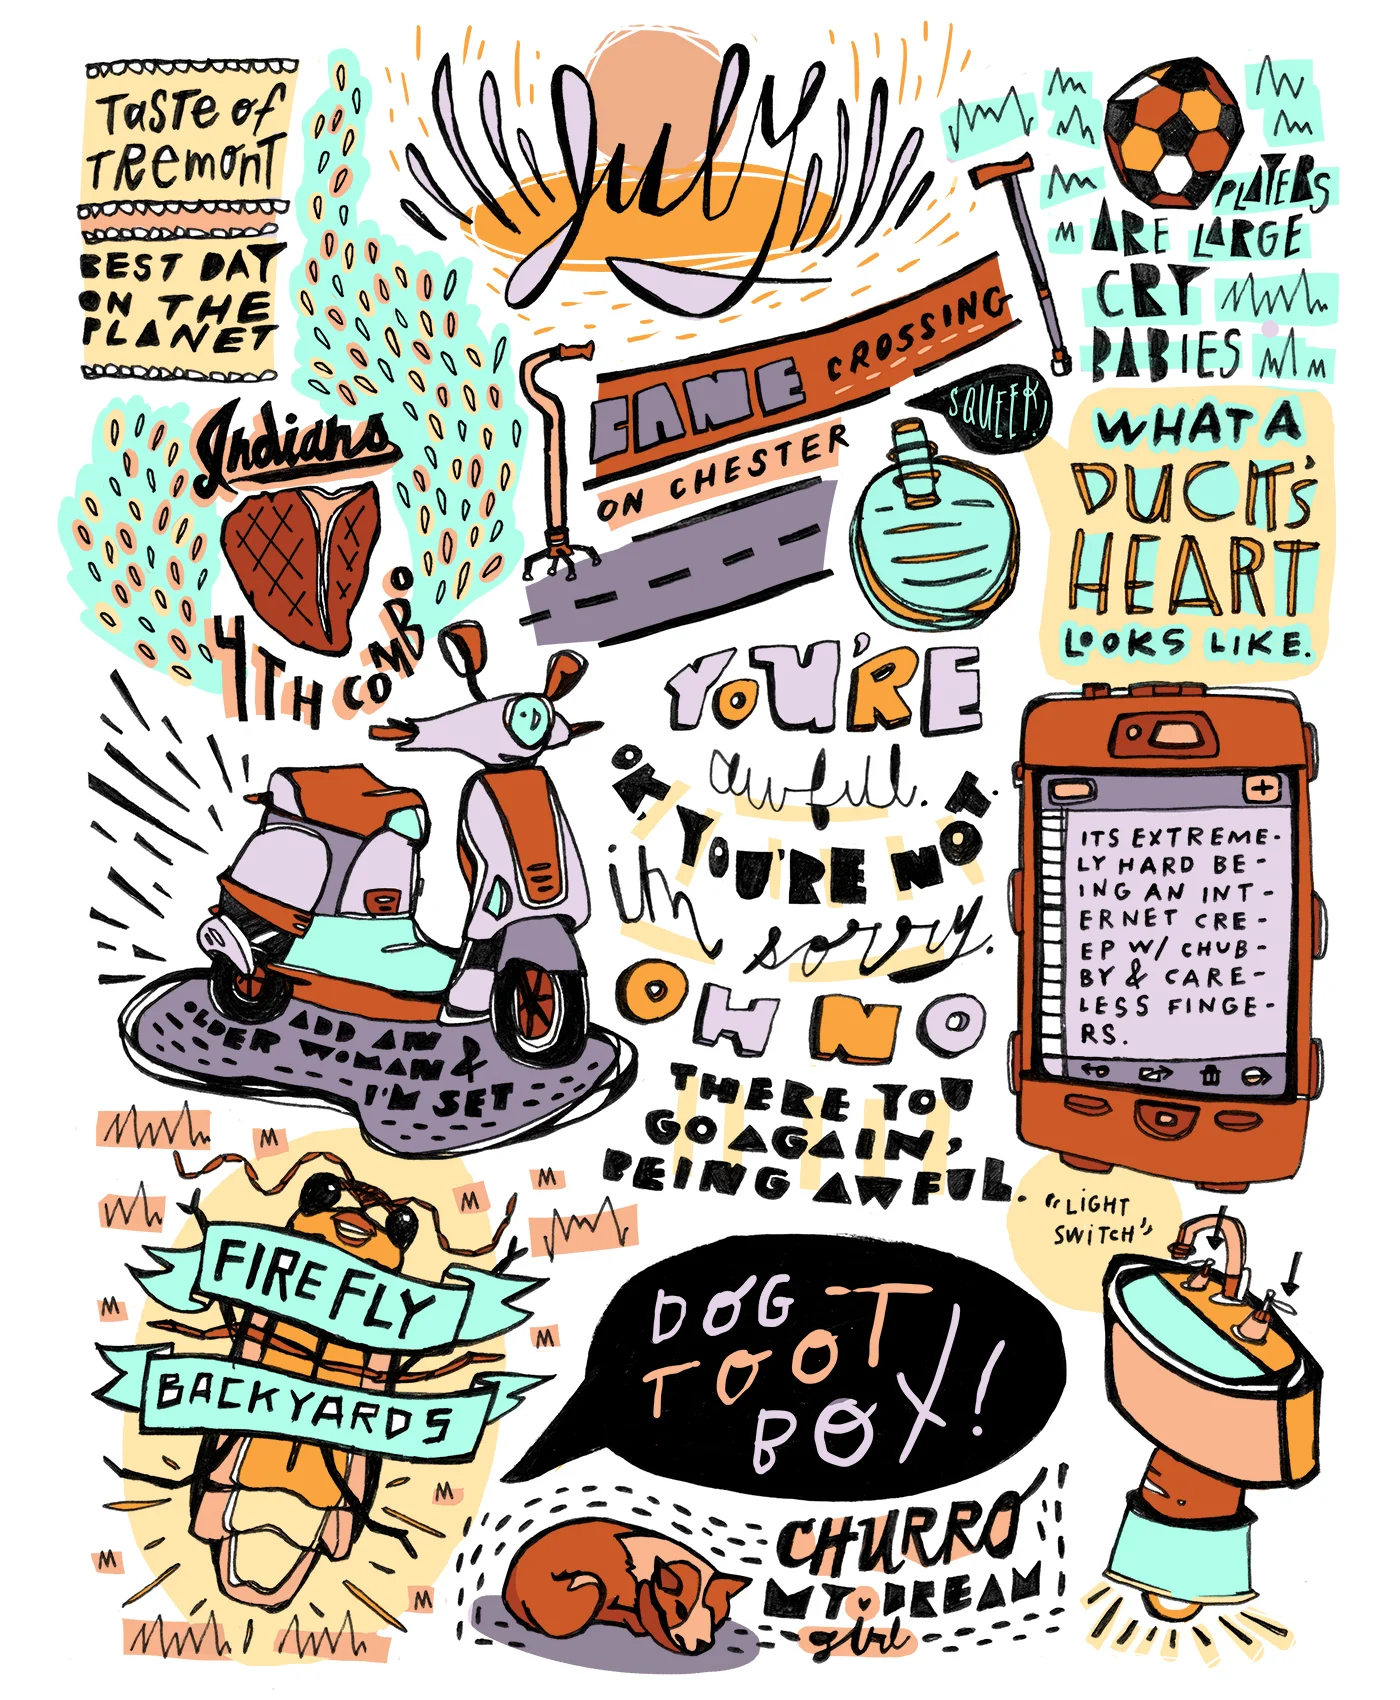 July
TASTE of
TREMONT
BEST DAY
ON THE
PLANET
PLAYERS
ARE LARGE
CRY
BABIES
CANE CROSSING
ON CHESTER
SQUEEK,
WHAT A
DUCK'S
HEART
LOOKS LIKE.
Indians
4TH COMBO
YOU'RE
awful.
OK, YOU'RE NOT.
im sorry.
OH NO
THERE YOU
GO AGAIN,
BEING AWFUL.
+
ITS EXTREME-
LY HARD BE-
ING AN INT-
ERNET CRE-
EP W/ CHUB-
BY & CARE-
LESS FINGE-
RS.
ADD AN
OLDER WOMAN &
I'M SET
FIREFLY
BACKYARDS
DOG
TOOT
BOX!
"LIGHT
SWITCH"
CHURRO
MY DREAM
girl